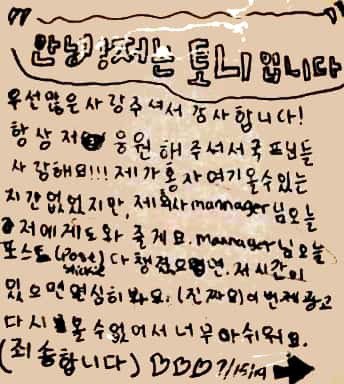 안녕 저는 토니 입니다
우선 많은 사랑 주셔서 감사합니다!
항상 저 응원 해 주셔서 국 프님들
사랑해요!!! 제가 혼자 여기 올수있는
시간 없었지만, 제 회사 mannager님 오늘
저에 제도와 줄게요. mannager님 오늘
포스트 (Post) 다 챙겼으면. 저 시간이
있으면 열심히 봐요. (진짜요) 이번 광고
다시 올 수 없어서 너무 아쉬워요.
(죄송합니다) ♡♡♡ 7/15/19 →